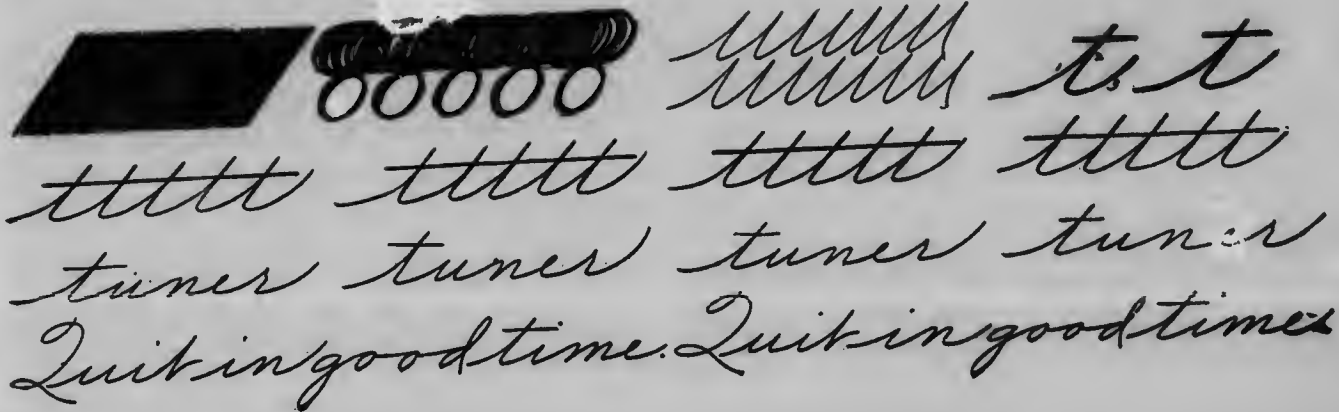 t t
ttttt ttttt ttttt ttttt
tuner tuner tuner tuner
Quit in good time. Quit in good times